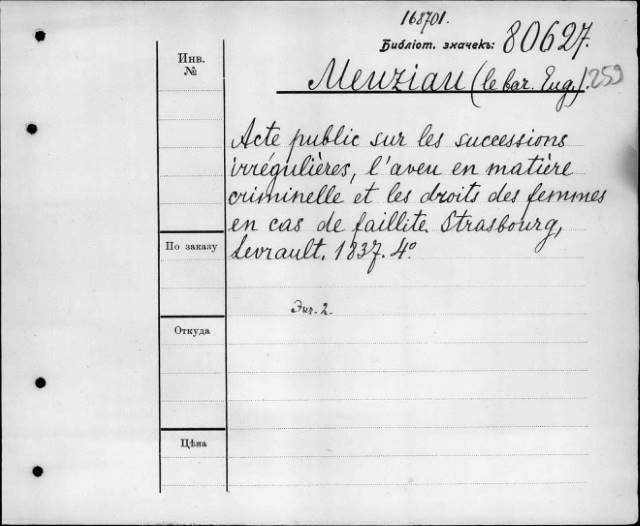 168701.
Библіот. значекъ: 80627.
Инв. №
Menziau (le bar. Eug.). 259
Acte public sur les successions
irrégulières, l'aveu en matière
criminelle et les droits des femmes
en cas de faillite. Strasbourg,
Levrault. 1837. 4º
По заказу
Экз. 2.
Откуда
Цѣна